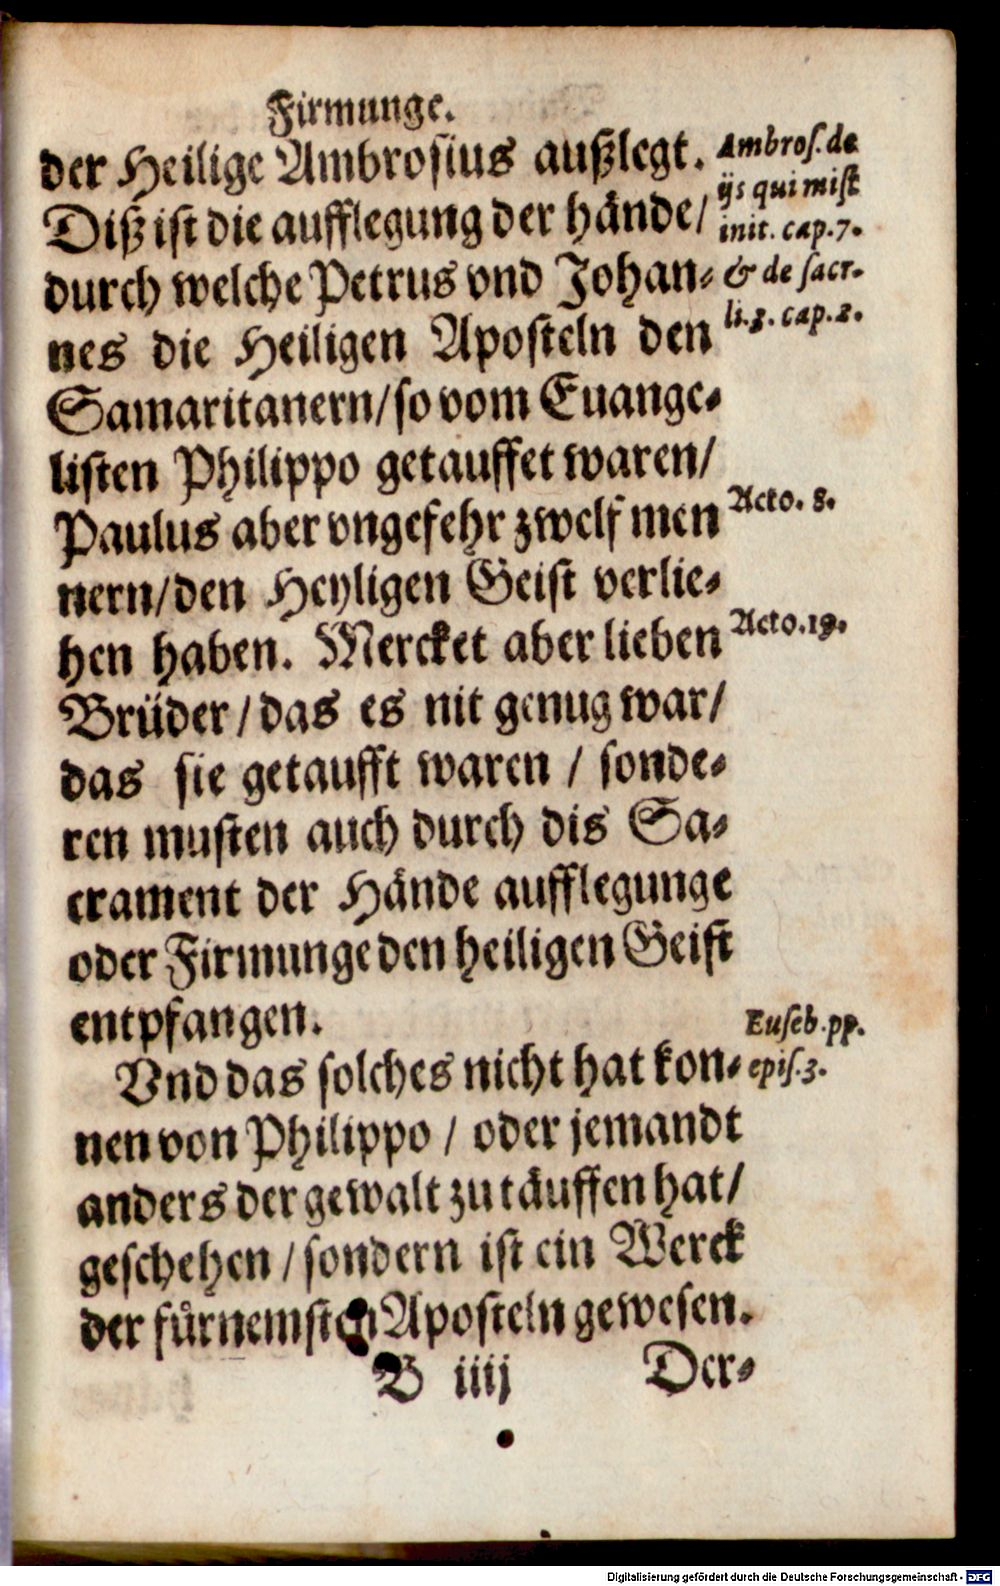 Firmunge.
der Heilige Ambrosius außlegt.
Diß ist die aufflegung der hände/
durch welche Petrus vnd Johan-
nes die Heiligen Aposteln den
Samaritanern/so vom Euange-
listen Philippo getauffet waren/
Paulus aber vngefehr zwelf men
nern/den Heyligen Geist verlie-
hen haben. Mercket aber lieben
Brüder/das es nit genug war/
das sie getaufft waren / sonde-
ren musten auch durch dis Sa-
crament der Hände aufflegunge
oder Firmunge den heiligen Geist
entpfangen.
Vnd das solches nicht hat kon-
nen von Philippo / oder jemandt
anders der gewalt zu täuffen hat/
geschehen /sondern ist ein Werck
der fürnemsten Aposteln gewesen.
B iiij Der-
Ambros. de
ijs qui mist
init. cap.7.
& de sacr.
li.3. cap.2.
Acto. 8.
Acto.19.
Euseb.pp.
epis.3.
Digitalisierung gefördert durch die Deutsche Forschungsgemeinschaft - DFG